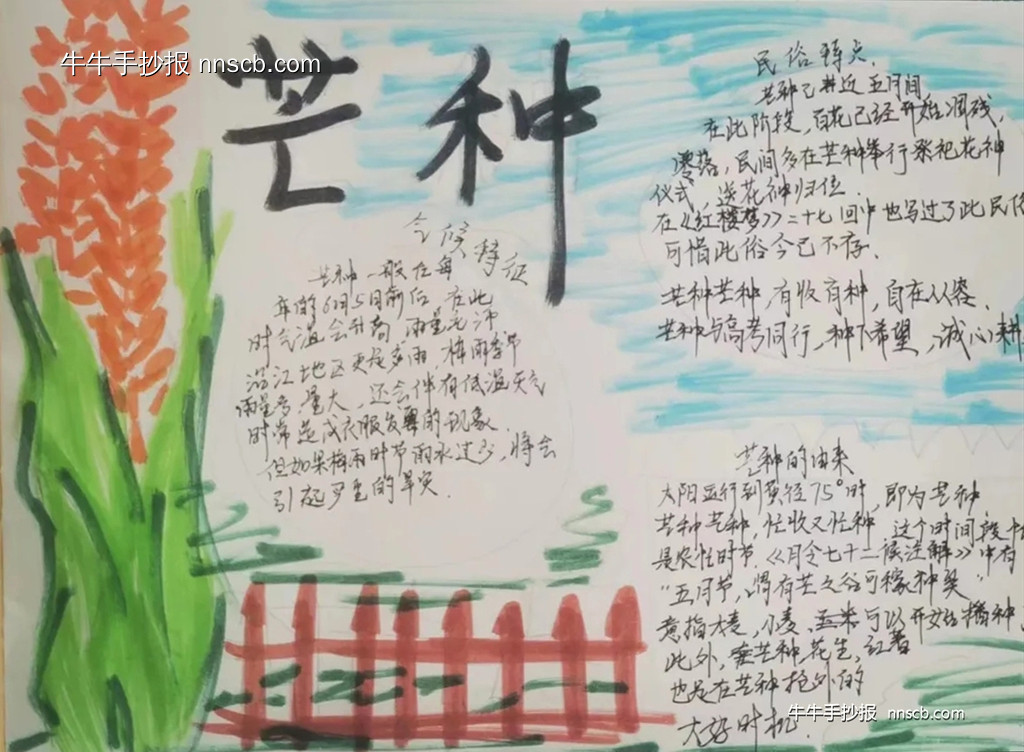 牛牛手抄报 nnscb.com
芒种
民俗特点
芒种已近五月间
在此阶段,百花已经开始凋残,
零落,民间多在芒种举行祭祀花神
仪式,送花神归位.
在《红楼梦》二十七回中也写过了此民俗
可惜此俗今已不存.
芒种芒种,有收有种,自在从容.
芒种与高考同行,种下希望,诚心耕
气候特征
芒种一般在每
年的6月5日前后,在此
时气温会升高,雨量充沛
沿江地区更是多雨,梅雨季节
雨量多,量大,还会伴有低温天气
时常造成衣服发霉的现象.
但如果梅雨时节雨水过少,将会
引起严重的旱灾.
芒种的由来
太阳运行到黄径75°时,即为芒种
芒种芒种,忙收又忙种 这个时间段
是农忙时节,《月令七十二候注解》中有
"五月节,谓有芒之谷可稼种矣"
意指大麦,小麦,玉米可以开始播种
此外,芒种,花生,红薯
也是在芒种
大好时机.
牛牛手抄报 nnscb.com